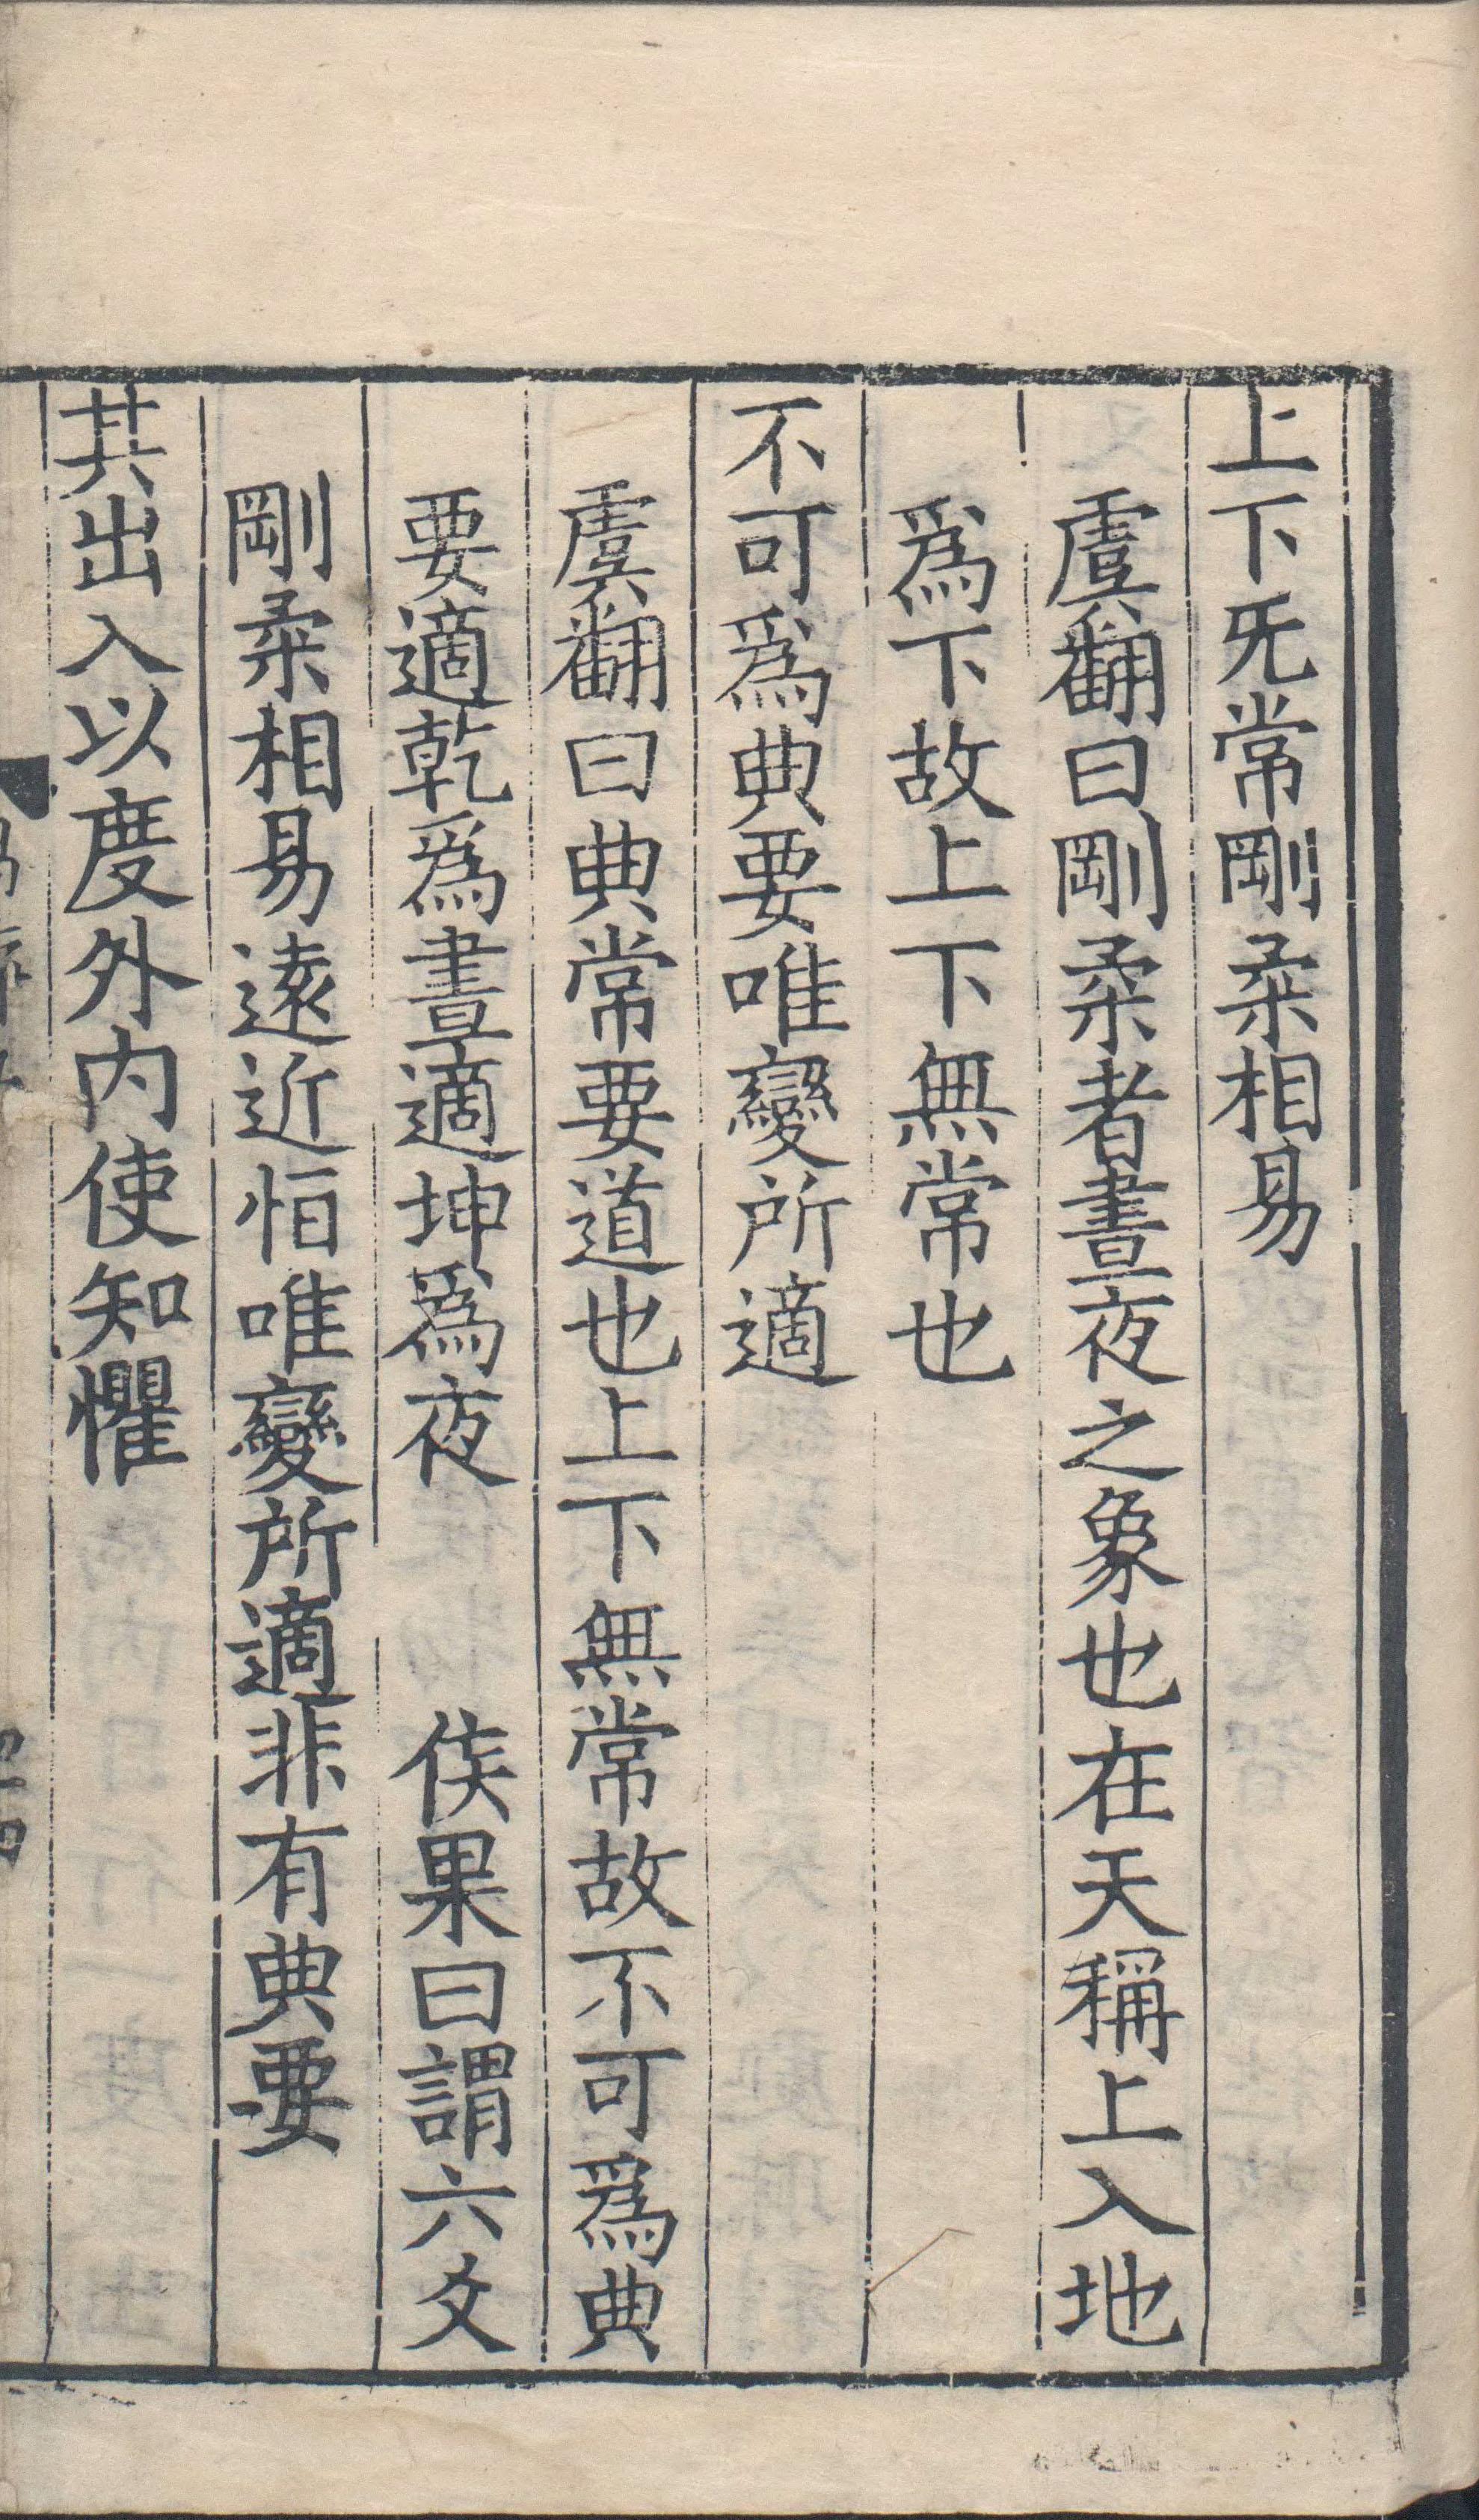 上下旡常剛柔相易
虞翻曰剛柔者晝夜之象也在天稱上入地
爲下故上下無常也
不可爲典要唯變所適
虞翻曰典常要道也上下無常故不可爲典
要適乾爲晝適坤爲夜　侯果曰謂六爻
剛柔相易遠近恒唯變所適非有典要
其出入以度外内使知懼